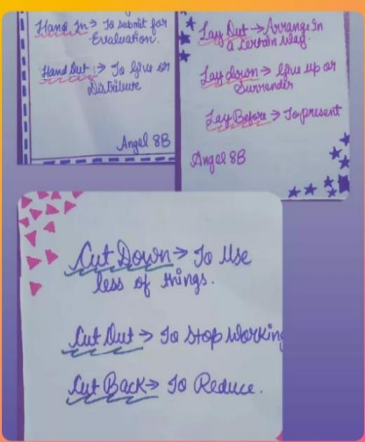 Hand In → To submit for
Evaluation.
Hand Out → To Give or
Distribute
Angel 8B
Lay Out → Arrange In
a Certain Way.
Lay down → Give up or
Surrender
Lay Before → To present
Angel 8B
Cut Down → To Use
less of things.
Cut Out → To Stop Working
Cut Back → To Reduce.